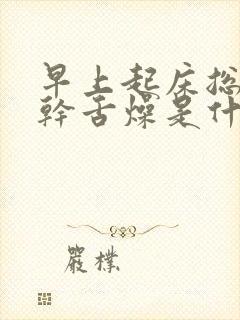 早上起床总
幹舌燥是什
嚴樸